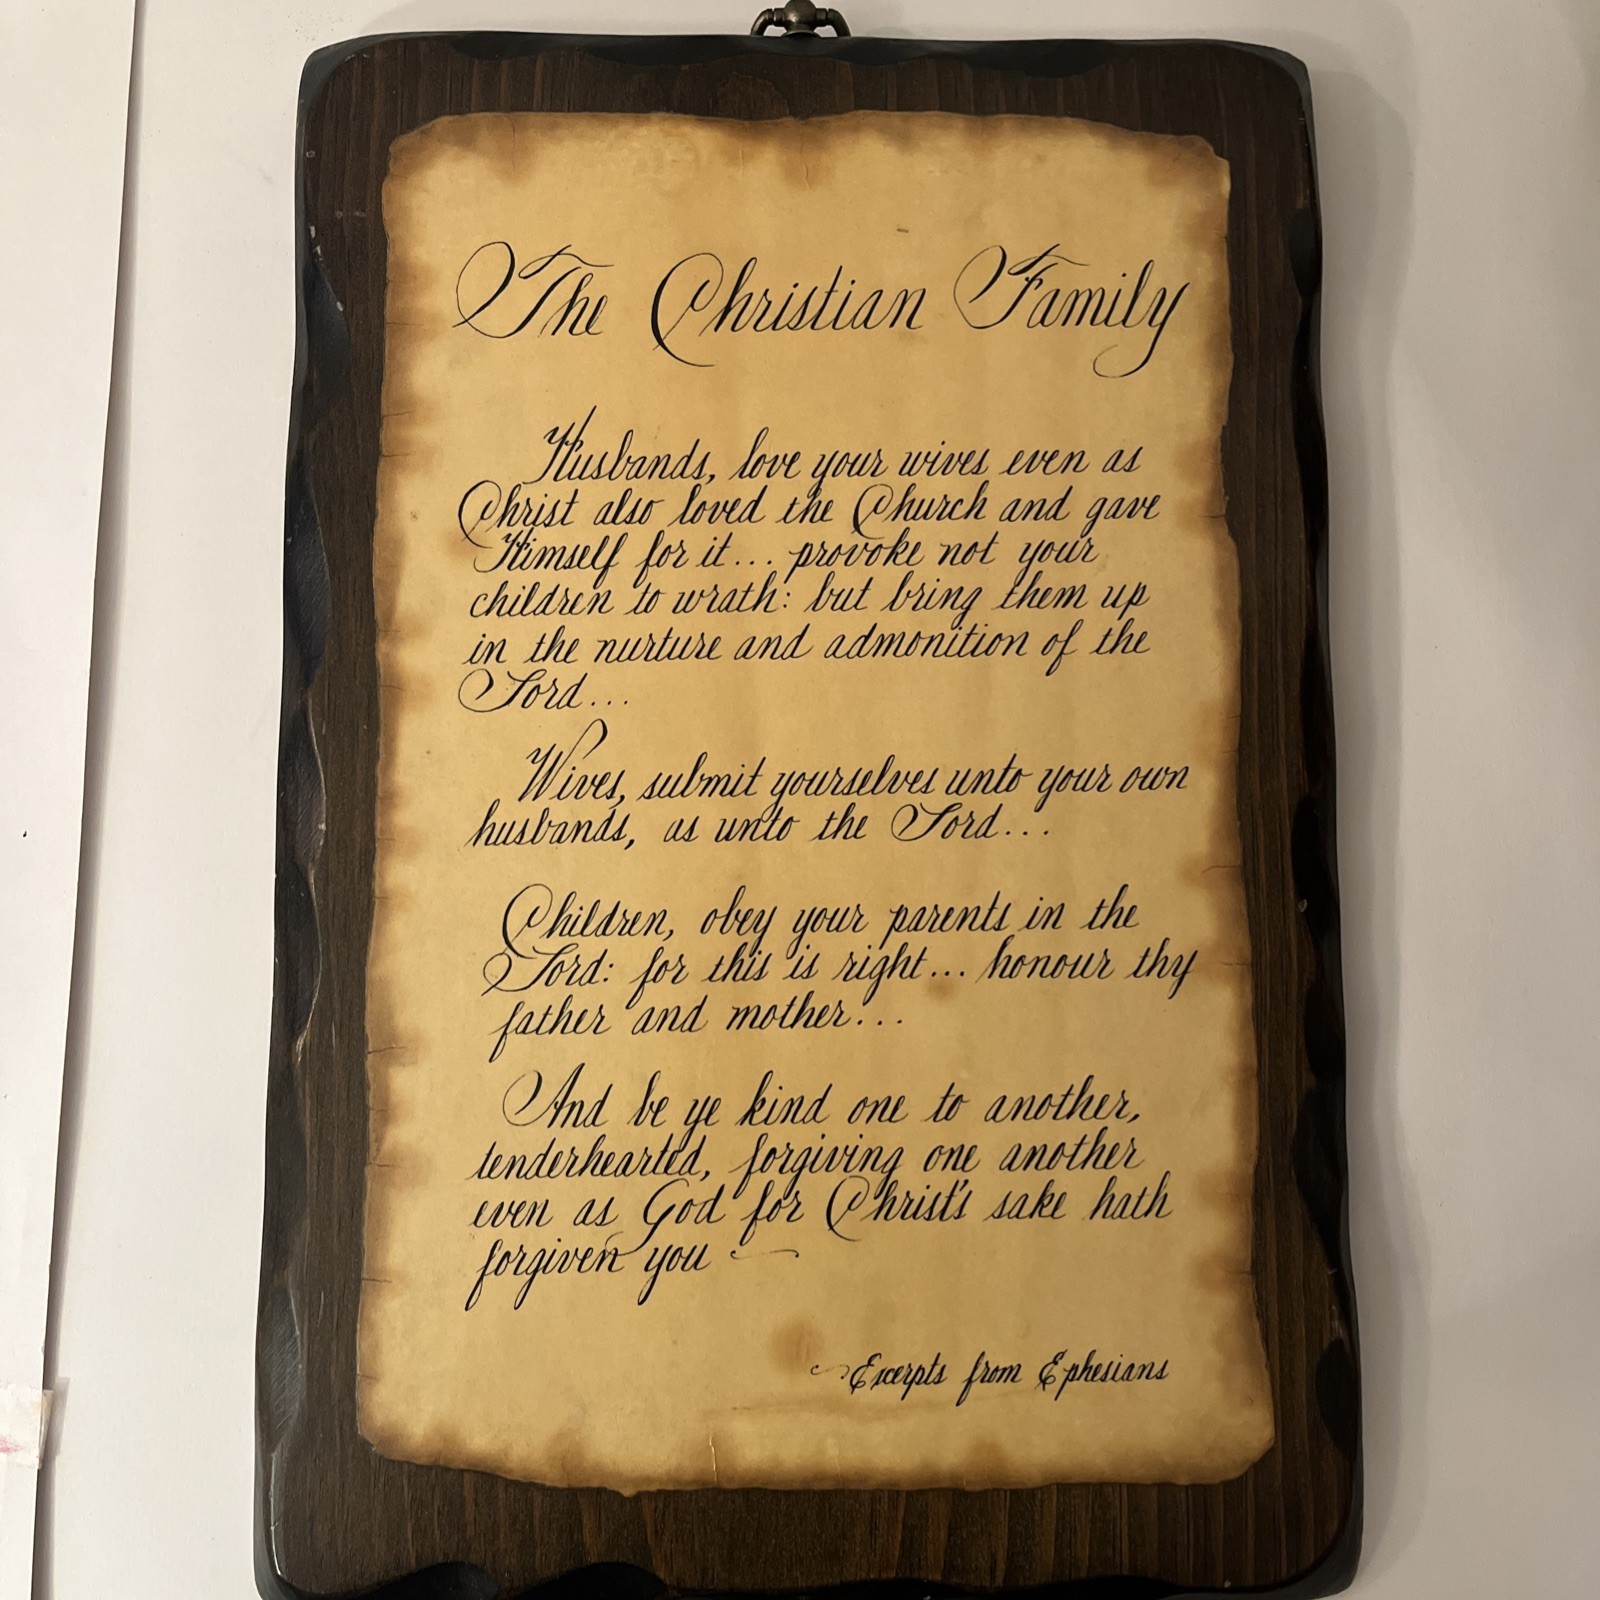 The Christian Family
Husbands, love your wives even as
Christ also loved the Church and gave
Himself for it... provoke not your
children to wrath: but bring them up
in the nurture and admonition of the
Lord...
Wives, submit yourselves unto your own
husbands, as unto the Lord...
Children, obey your parents in the
Lord: for this is right... honour thy
father and mother...
And be ye kind one to another,
tenderhearted, forgiving one another
even as God for Christ's sake hath
forgiven you
Excerpts from Ephesians